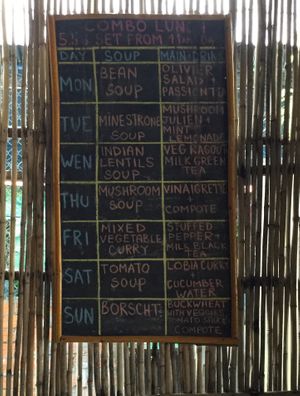 COMBO LUNCH
SET FROM
DAY SOUP MAIN+DRINK
MON BEAN SOUP
OLIVIER SALAD +
TUE MINESTRONE SOUP
MUSHROOM JULIEN + MINT LEMONADE
WEN INDIAN LENTILS SOUP
VEG RAGOUT MILK GREEN TEA
THU MUSHROOM SOUP
VINAIGRETTE + COMPOTE
FRI MIXED VEGETABLE CURRY
STUFFED PEPPER + MILK BLACK TEA
SAT TOMATO SOUP
LOBIA CURRY + CUCUMBER WATER
SUN BORSCHT
BUCKWHEAT WITH VEGGIES TOMATO SAUCE COMPOTE